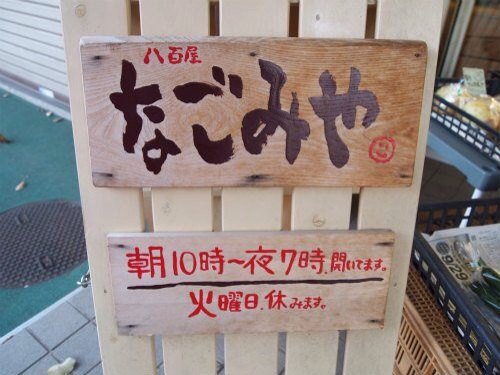 八百屋
なごみや
朝10時～夜7時.開いてます。
火曜日.休みます。
9/29